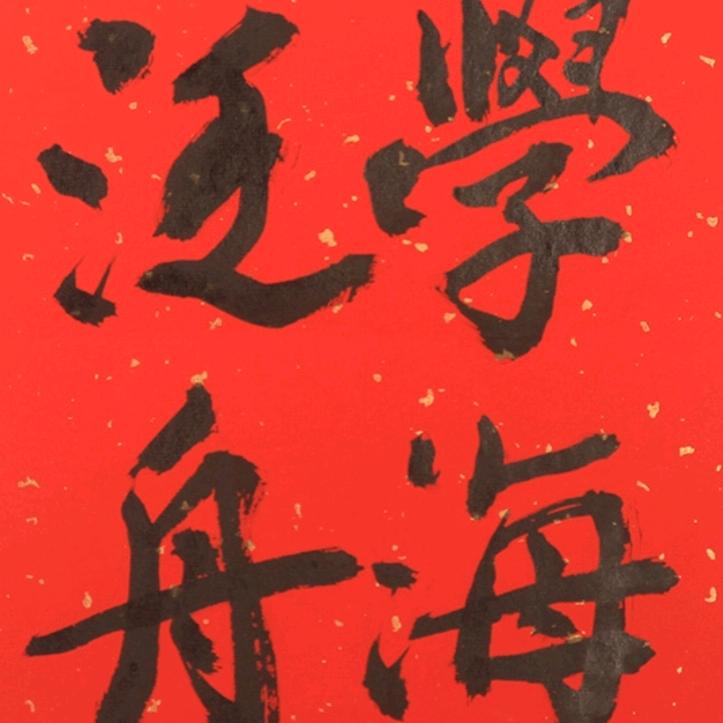 學海
泛舟